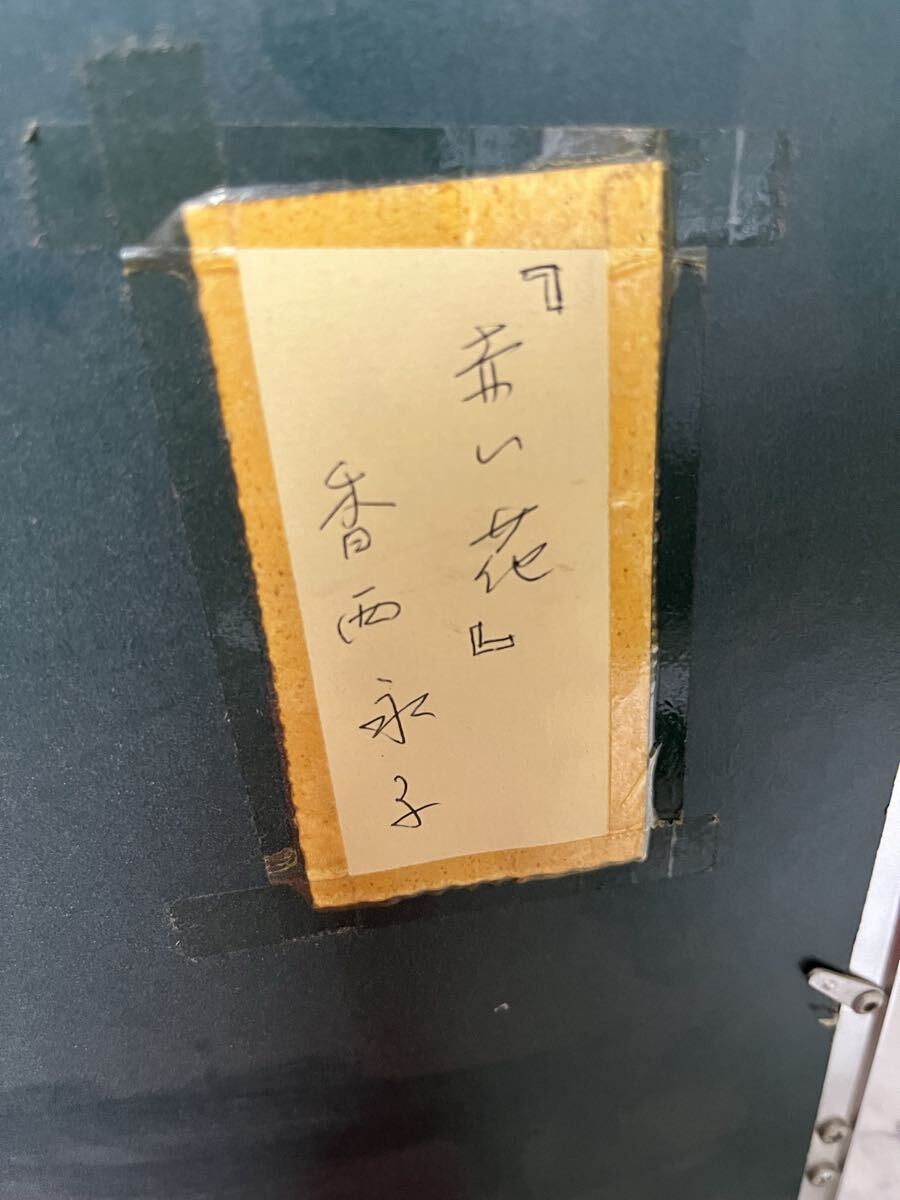 『赤い花』
香西永子